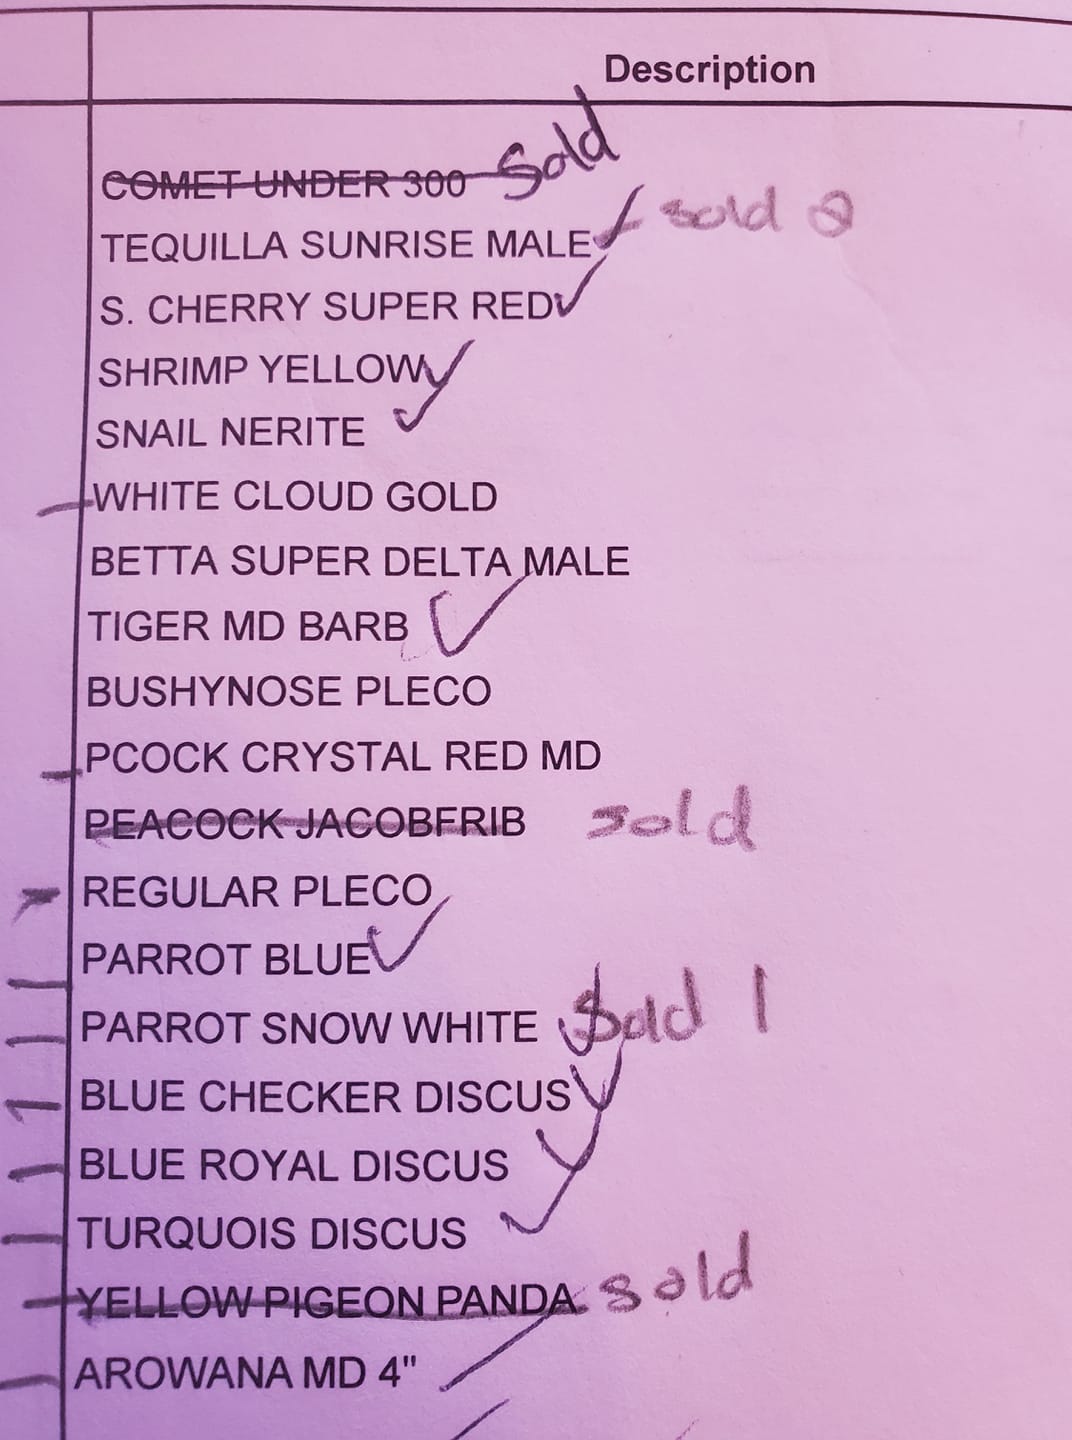 Description
COMET UNDER 300 Sold
TEQUILLA SUNRISE MALE sold 2
S. CHERRY SUPER RED
SHRIMP YELLOW
SNAIL NERITE
WHITE CLOUD GOLD
BETTA SUPER DELTA MALE
TIGER MD BARB
BUSHYNOSE PLECO
PCOCK CRYSTAL RED MD
PEACOCK JACOBFRIB sold
REGULAR PLECO
PARROT BLUE
PARROT SNOW WHITE Sold 1
BLUE CHECKER DISCUS
BLUE ROYAL DISCUS
TURQUOIS DISCUS
YELLOW PIGEON PANDA sold
AROWANA MD 4"